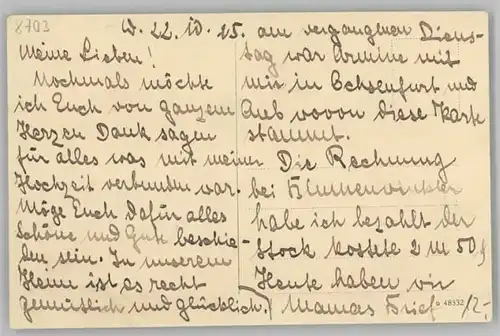 8703
W. 22. 10. 15.
Meine Lieben!
Nochmals möchte
ich Euch von ganzem
Herzen Dank sagen
für alles was mit meiner
Hochzeit verbunden war.
Möge Euch dafür alles
schöne und Gute beschie-
den sein. In unserem
Heim ist es recht
gemütlich und glücklich.
am vergangenen Diens-
tag war Armine mit
mir in Ochsenfurt und
Aub wovon diese Karte
stammt.
Die Rechnung
bei Blumenwinkler
habe ich bezahlt der
Stock kostete 2 M 50 ₰
Heute haben wir
Mamas Brief
48332